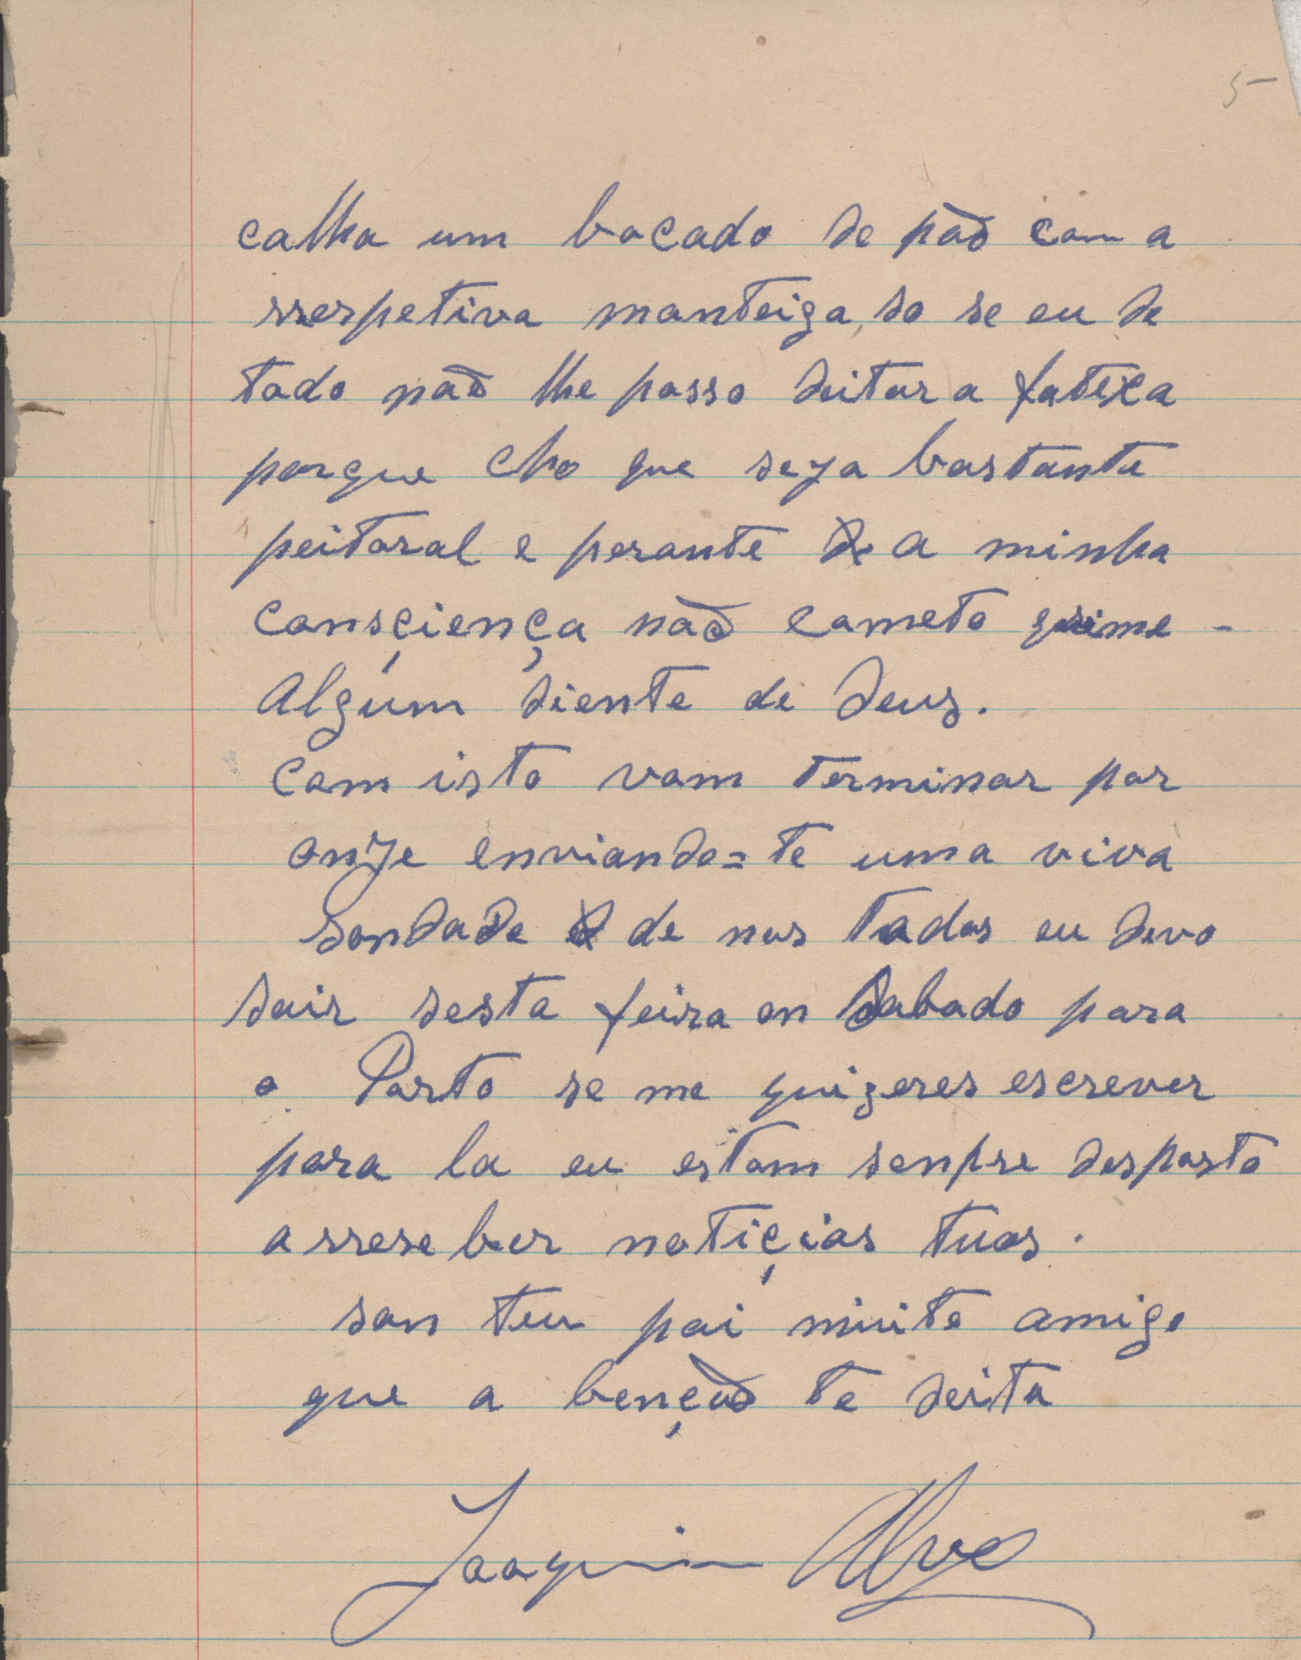 5
calha um bocado de pão com a
rrespetiva manteiga, so se eu de
todo não lhe posso deitar a fatexa
porque cho que seja bastante
peitoral e perante a minha
consçiença não cometo qrime
Algum diente de Deus.
Com isto vom terminar por
onje enviando=te uma viva
Sondade de nos Todos eu devo
sair sesta feira on Sabado para
o Porto se me quizeres escrever
para la eu estom senpre desposto
a rreseber notiçias tuas.
son teu pai muito amigo
que a benção te deita
Joaquim Alve